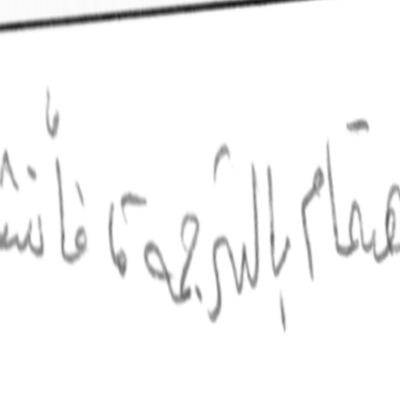 هتمام بالترجمة فأنش